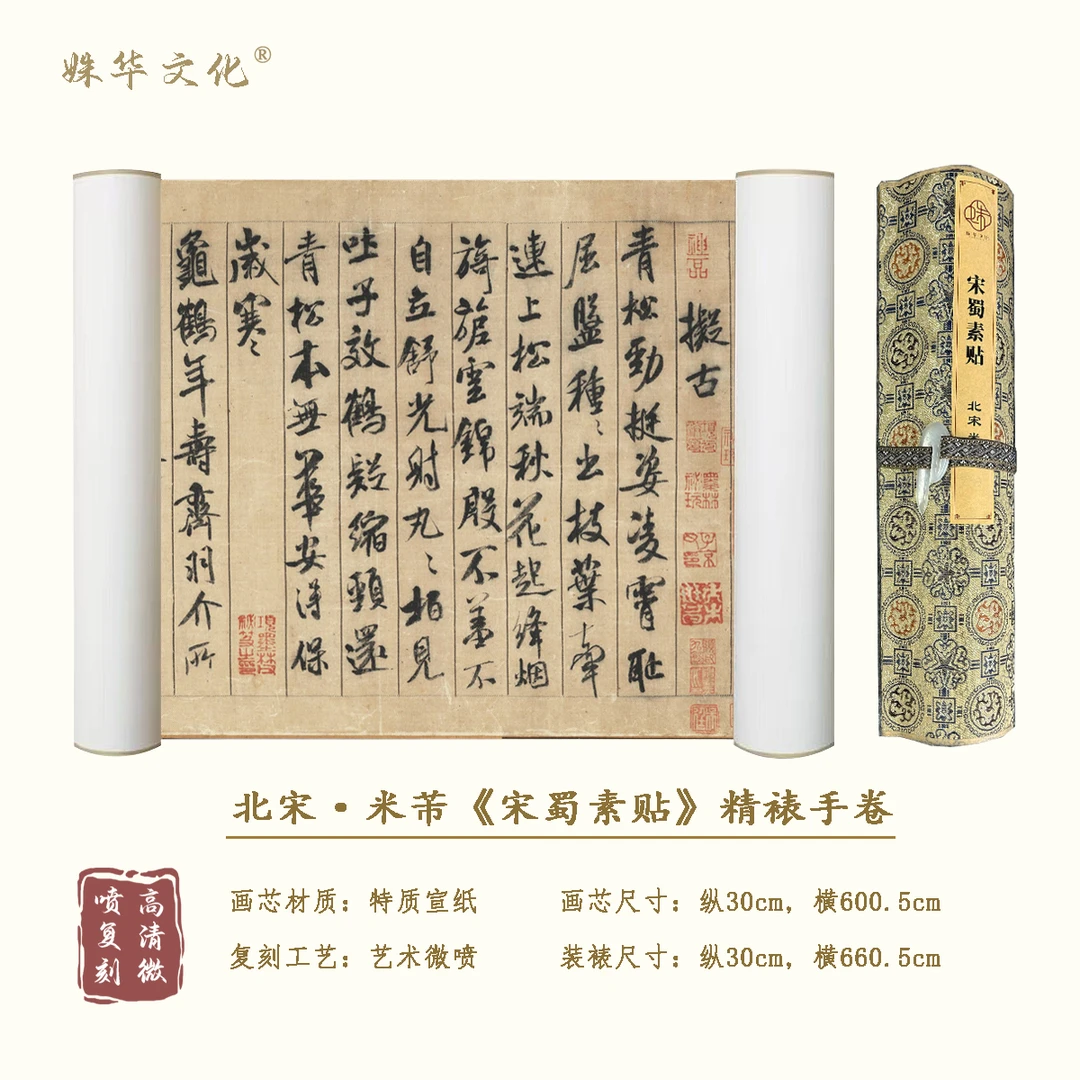 姝华文化®
神品
擬古
青松勁挺姿凌霄耻
屈盤種〻出枝葉牽
連上松端秋花起絳烟
旖旎雲錦殷不羞不
自立舒光射丸〻柏見
吐子效鶴疑縮頸還
青松本無華安得保
歲寒〻
龜鶴年壽齊羽介所
宋蜀素贴
北宋 米
北宋·米芾《宋蜀素贴》精裱手卷
高清微
喷复刻
画芯材质：特质宣纸
画芯尺寸：纵30cm, 横600.5cm
复刻工艺：艺术微喷
装裱尺寸：纵30cm, 横660.5cm